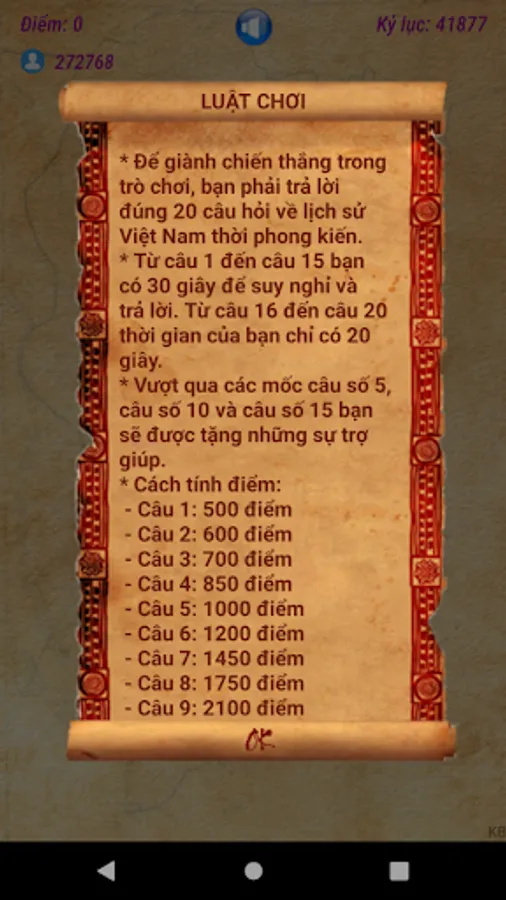 Điểm: 0
Kỷ lục: 41877
272768
LUẬT CHƠI
* Để giành chiến thắng trong
trò chơi, bạn phải trả lời
đúng 20 câu hỏi về lịch sử
Việt Nam thời phong kiến.
* Từ câu 1 đến câu 15 bạn
có 30 giây để suy nghỉ và
trả lời. Từ câu 16 đến câu 20
thời gian của bạn chỉ có 20
giây.
* Vượt qua các mốc câu số 5,
câu số 10 và câu số 15 bạn
sẽ được tặng những sự trợ
giúp.
* Cách tính điểm:
- Câu 1: 500 điểm
- Câu 2: 600 điểm
- Câu 3: 700 điểm
- Câu 4: 850 điểm
- Câu 5: 1000 điểm
- Câu 6: 1200 điểm
- Câu 7: 1450 điểm
- Câu 8: 1750 điểm
- Câu 9: 2100 điểm
OK